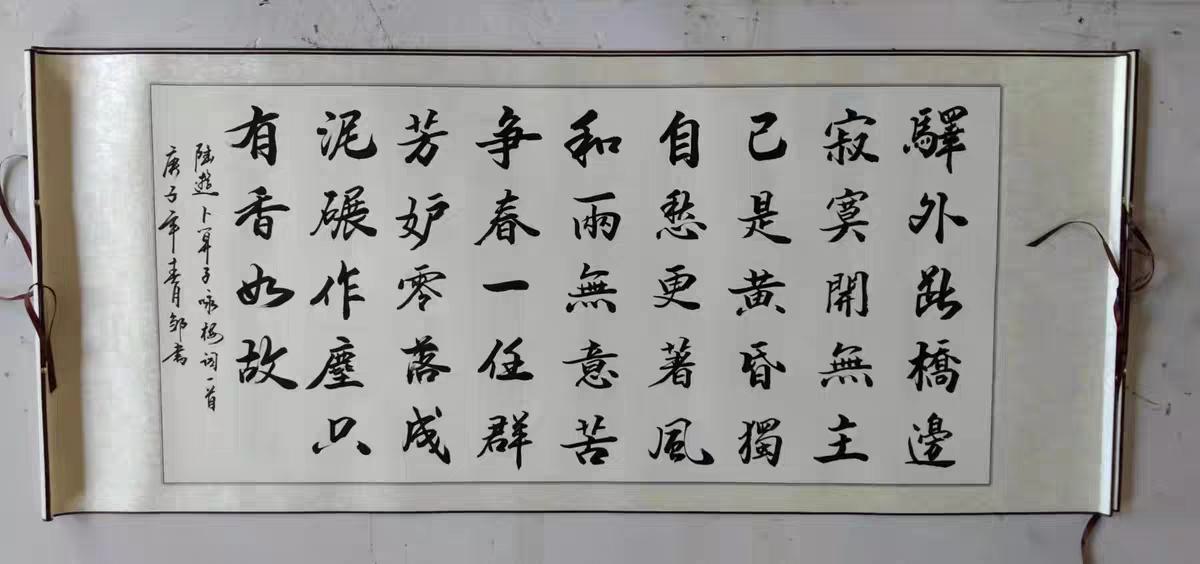 驛外斷橋邊
寂寞開無主
已是黃昏獨
自愁更著風
和雨無意苦
爭春一任群
芳妒零落成
泥碾作塵只
有香如故
陸遊卜算子咏梅詞一首
庚子年春月鄒書